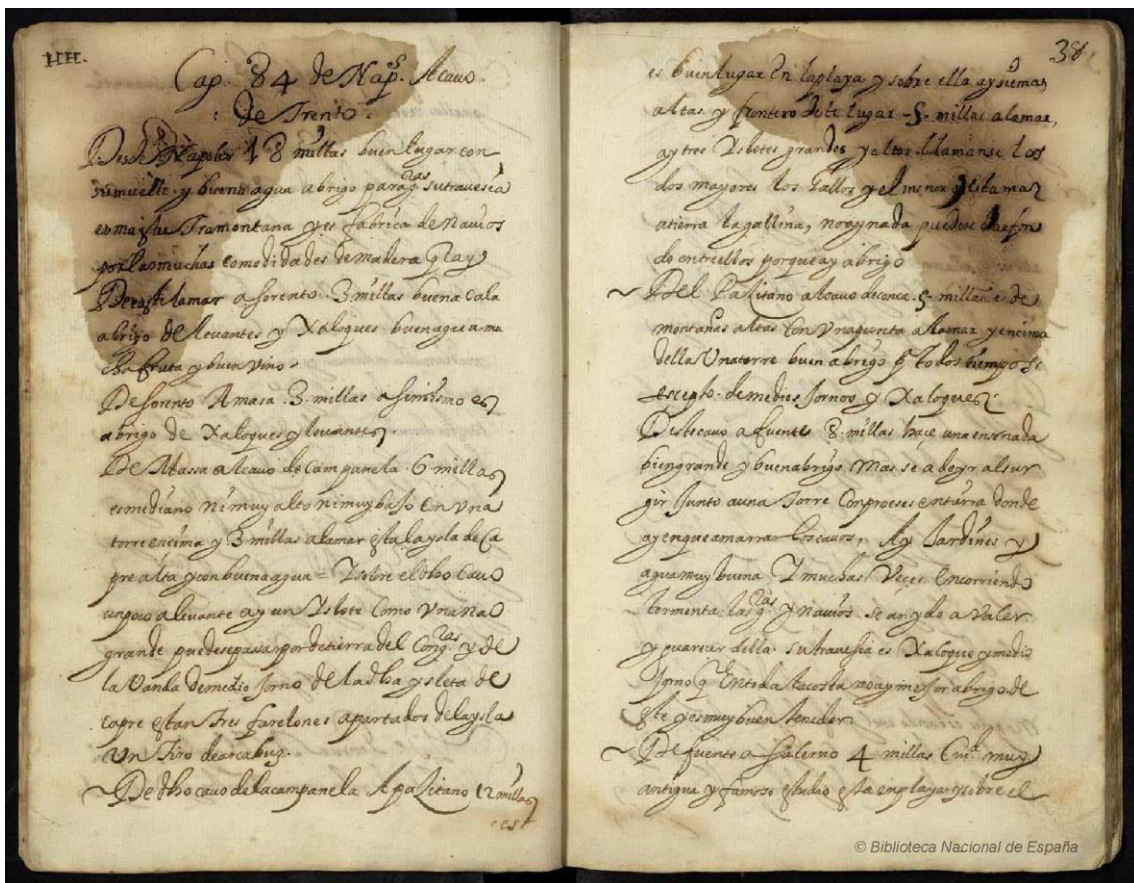 IIII.
Cap. 84 de Nap.s Acauo
: de Trento :
Desde Napoles 18 millas buen lugar con
su muelle y buena agua abrigo para g.las su trauesia
es maestre Tramontana y es fabrica de Nauios
por las muchas comodidades de madera q ay
De castilamar a sorento. 3 millas buena cala
abrigo de leuantes y Xaloques buen agua mu
cha fruta y buen vino.
De sorento A masa. 3. millas asimismo es
abrigo de Xaloques y leuantes
De Massa al cauo de Campanela. 6 millas
es mediano ni muy alto ni muy baso con vna
torre encima y 3 millas a la mar esta la ysla de Ca
pre alta y con buena agua = Y sobre el dho Cauo
un poco a leuante ay un Yslote como vna nao
grande puedese passar por de tierra del Con g.las y de
la Vanda de medio Jorno de la dha ysleta de
capre estan tres farelones apartados de la ysla
Un tiro de arcabuz.
De dho cauo de la campanela A paLitano 12 millas
es
38
es buen lugar En la playa y sobre ella ay
altas. y frontero deste lugar -5- millas a la mar,
ay tres Yslotes grandes y altos llamanse los
dos mayores los Gallos y el menor q esta mas
a tierra la gallina, no ay nada puedese dar fon
do entre ellos porque ay abrigo
Del PaLitano al cauo de conca. 5. millas es de
montañas altas con vna punta a la mar y encima
della Una torre buen abrigo todos tiempos
escepto. de medios Jornos y Xaloques.
Deste cauo a fuente 8. millas haçe una ensenada
bien grande y buen abrigo mas se a de yr al sur
gir Junto a una Torre Con proeses en tierra donde
ay en que amarrar los cauos, Ay Jardines y
agua muy buena Y muchas Veçes En corriendo
tormenta las g.las y nauios se an ydo a valer
y guarecer della. su trauesia es Xaloque y medio
Jorno q En toda la costa no ay mejor abrigo. de
este y es muy buen tenedor
De fuente a Salerno 4 millas Ciu.d muy
antigua y famoso estudio esta en playa y sobre el
© Biblioteca Nacional de España